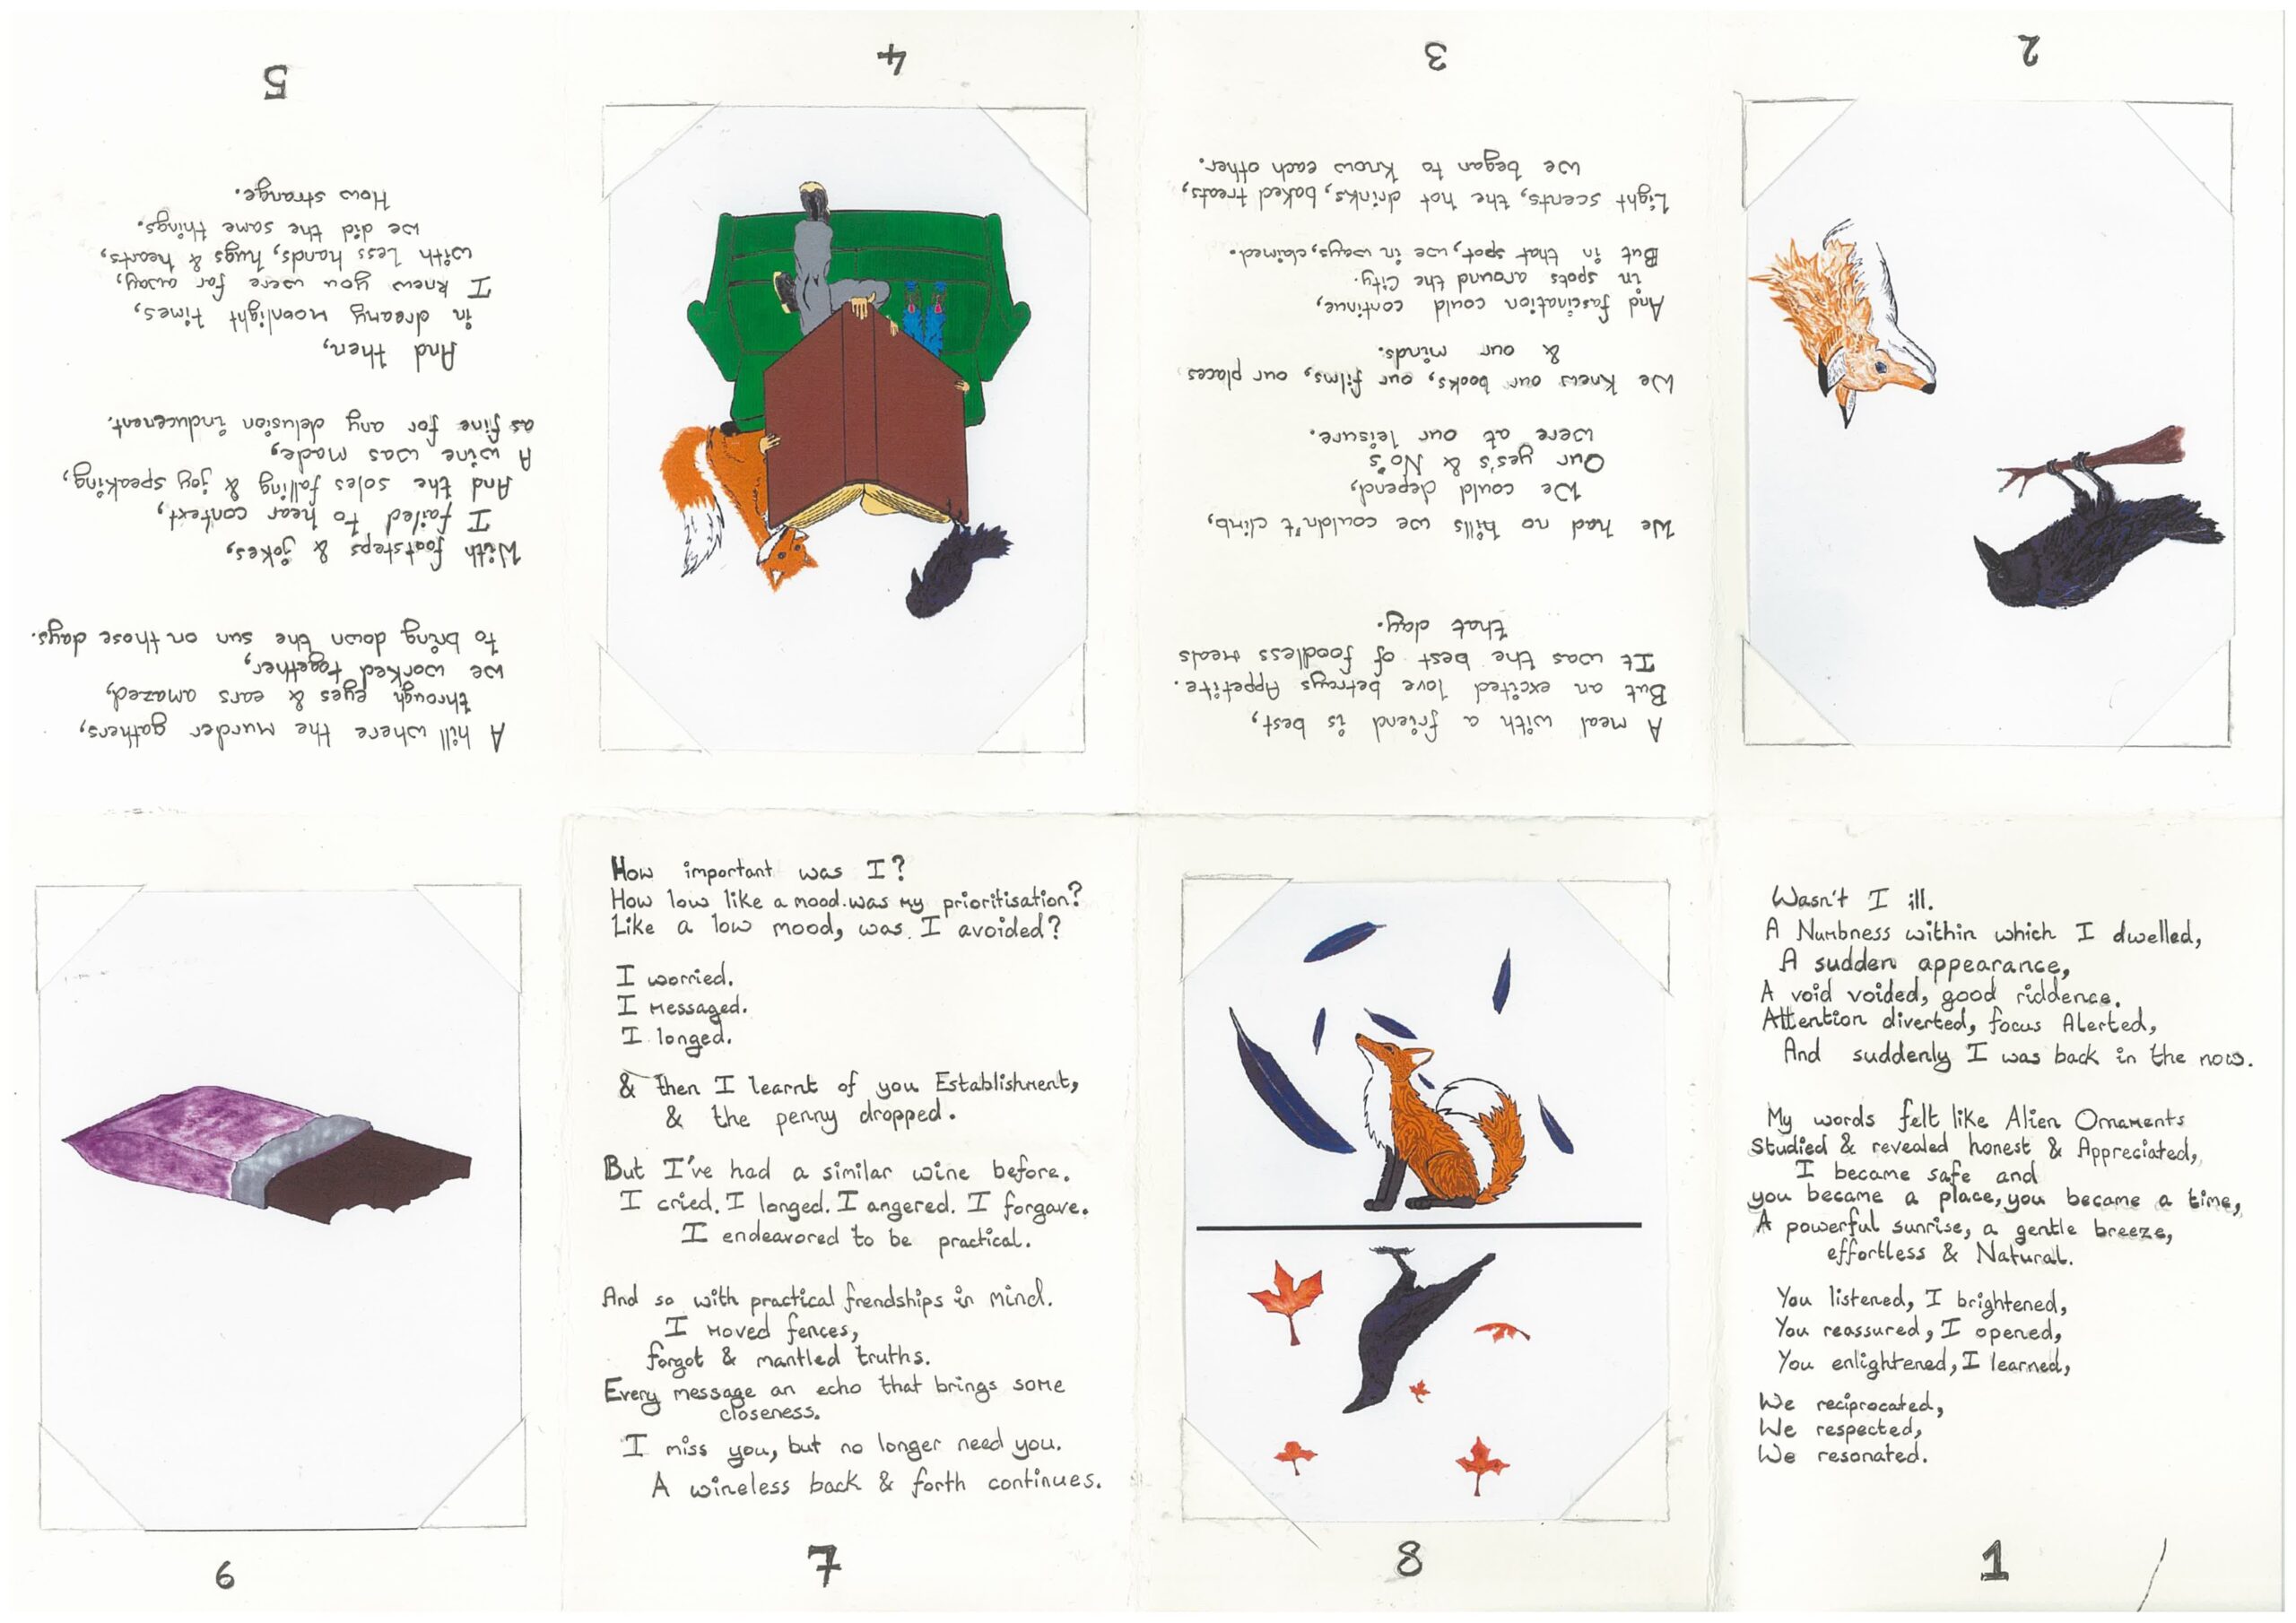 Wasn't I ill.
A Numbness within which I dwelled,
A sudden appearance,
A void voided, good riddence.
Attention diverted, focus Alerted,
And suddenly I was back in the now.
My words felt like Alien Ornaments
Studied & revealed honest & Appreciated,
I became safe and
you became a place, you became a time,
A powerful sunrise, a gentle breeze,
effortless & Natural.
You listened, I brightened,
You reassured, I opened,
You enlightened, I learned,
We reciprocated,
We respected,
We resonated.
1
2
A meal with a friend is best,
But an excited love betrays Appetite.
It was the best of foodless meals
that day.
We had no hills we couldn't climb,
We could depend,
Our yes's & No's
were at our leisure.
We knew our books, our films, our places
& our minds.
And fascination could continue,
in spots around the City.
But in that spot, we in ways, claimed.
Light scents, the hot drinks, baked treats,
we began to know each other.
3
4
A hill where the murder gathers,
through eyes & ears amazed,
we worked together,
to bring down the sun on those days.
With footsteps & jokes,
I failed to hear context,
And the soles falling & joy speaking,
A wine was made,
as fine for any delusion inducement.
And then,
in dreamy moonlight times,
I knew you were far away,
with less hands, hugs & hearts,
we did the same things.
How strange.
5
6
How important was I?
How low like a mood was my prioritisation?
Like a low mood, was I avoided?
I worried.
I messaged.
I longed.
& then I learnt of you Establishment,
& the penny dropped.
But I've had a similar wine before.
I cried. I longed. I angered. I forgave.
I endeavored to be practical.
And so with practical frendships in mind.
I moved fences,
forgot & mantled truths.
Every message an echo that brings some
closeness.
I miss you, but no longer need you.
A wireless back & forth continues.
7
8